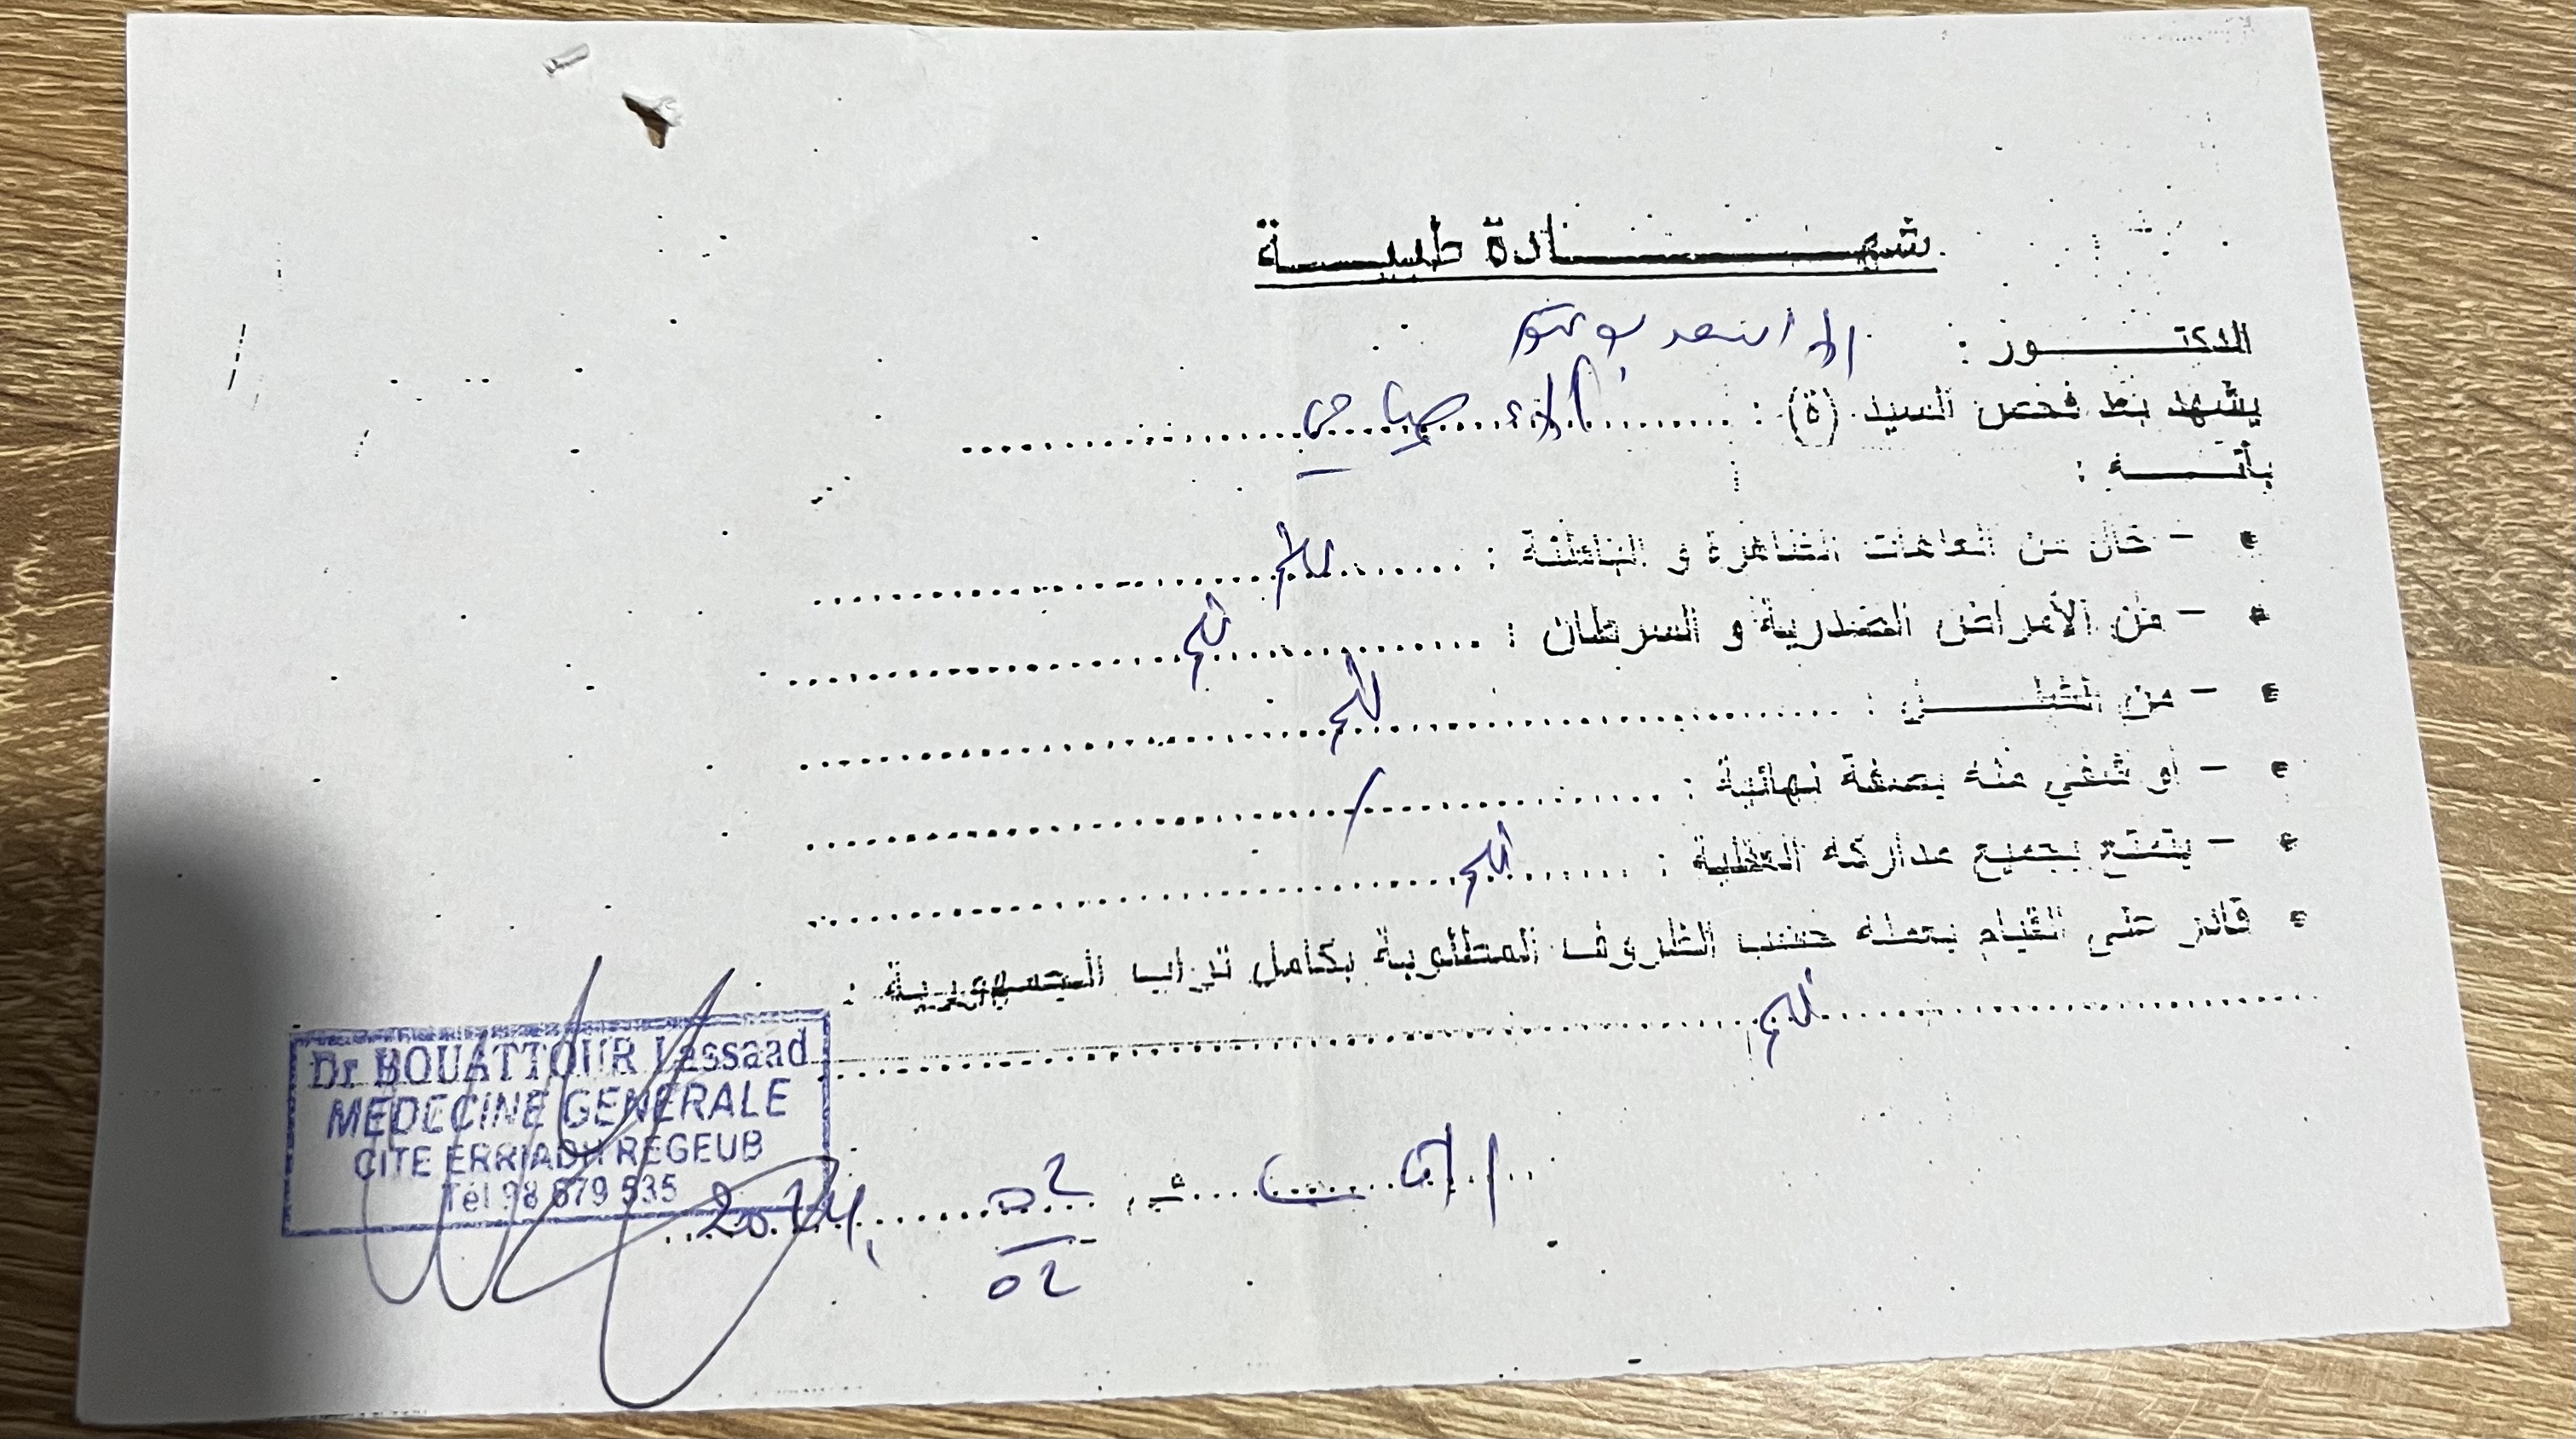 شهادة طبية
الدكتور : الاسعد بوعتور
يشهد بعد فحص السيد (ة) : آلاء
بأنه :
- خال من العاهات الظاهرة و الباطنة : نعم
- من الأمراض الصدرية و السرطان : نعم
- من الشلل : نعم
- أو شفي منه بصفة نهائية : /
- يتمتع بجميع مداركه العقلية : نعم
قادر على القيام بعمله حسب الظروف المطلوبة بكامل تراب الجمهورية :
نعم
الرقاب في 02/02 2024
Dr BOUATTOUR Lassaad
MEDECINE GENERALE
CITE ERRIADH REGEUB
Tél 98 679 535